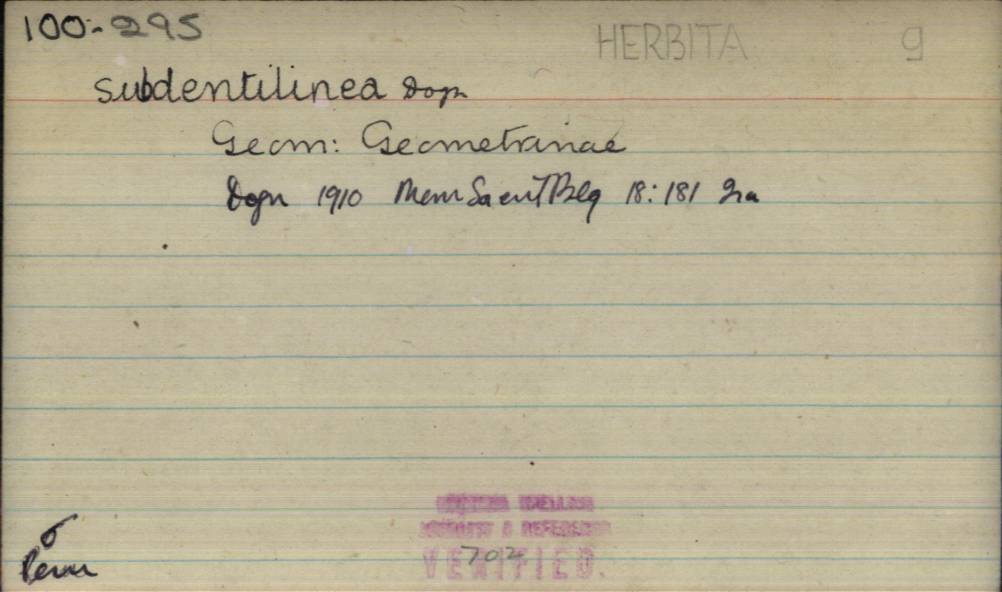 100-295 HERBITA g
subdentilinea Dogn
Geom: Geometrinae
Dogn 1910 Mem Sa ent Blg 18:181
♂
Peru
702
VERIFIED.